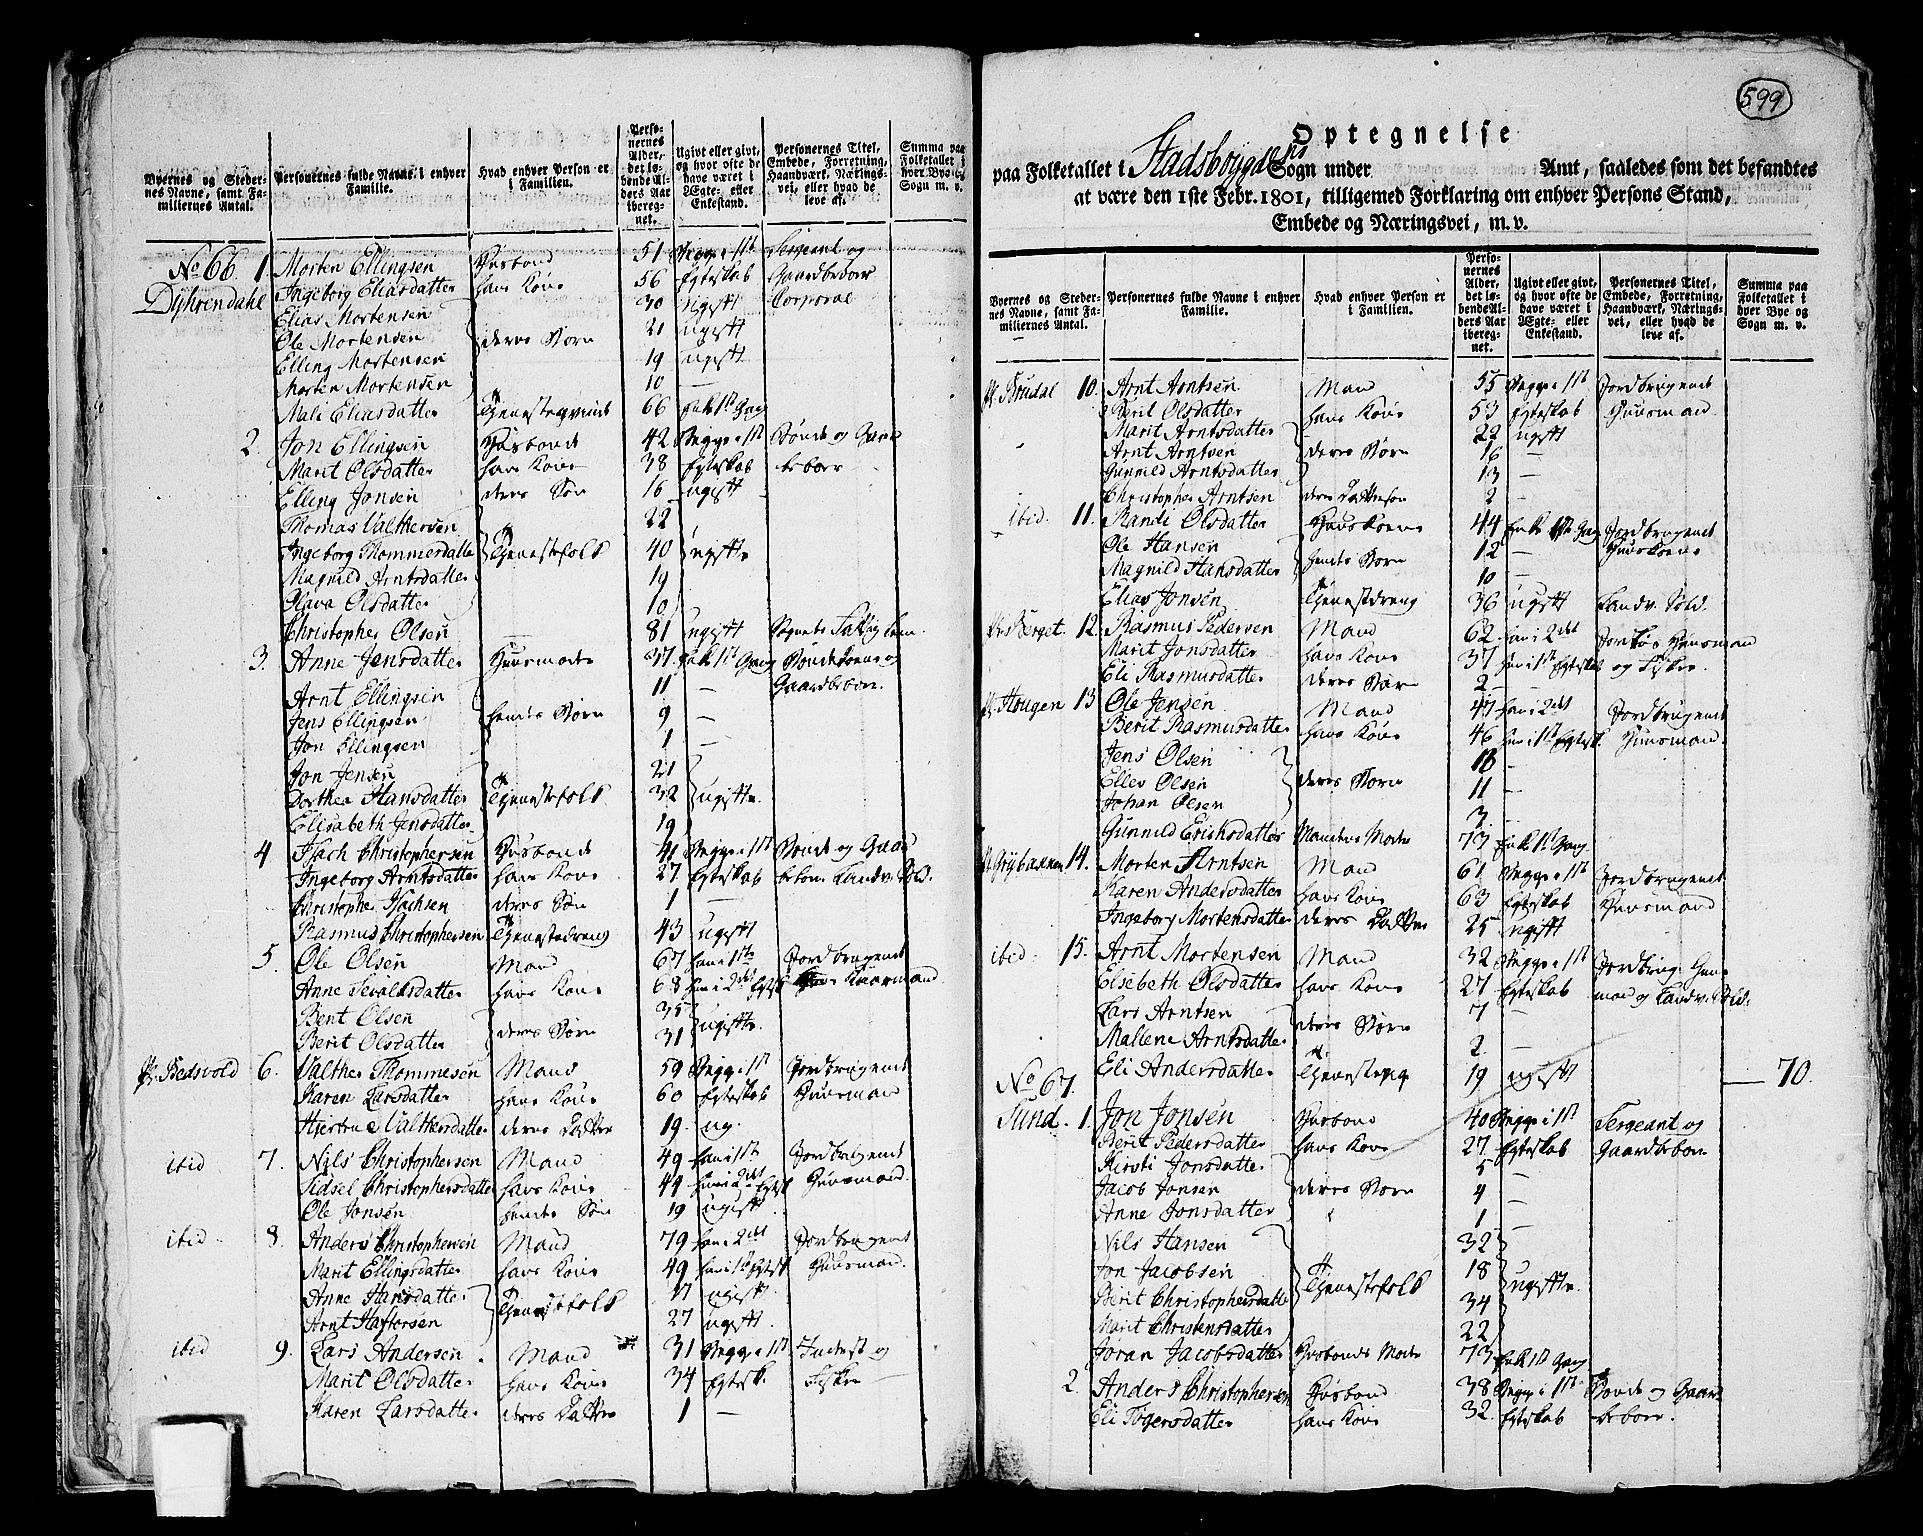 Byernes og Steder-
nes Navne, samt Fa-
miliernes Antal.
Personernes fulde Navne i enhver
Familie.
Hvad enhver Person er
i Familien.
Perso-
nernes
Alder,
det lø-
bende Al-
ders Aar
iberegnet.
Ugivt eller givt,
og hvor ofte de
have været i
Ægte- eller
Enkestand.
Personernes Titel,
Embede, Forretning,
Haandværk, Nærings-
vei, eller hvad de
leve af.
Summa paa
Folketallet i
hver Bye og
Sogn m. v.
No 66. 1. Morten Ellingsen Husbond 51 Begge i 1ste Sergeant og
Dyhrendahl Ingeborg Eliasdatter hans Kone 56 Egteskab Gaardbeboer
Elias Mortensen 30 ugift Corporal
Ole Mortensen deres Børn 21 ugift
Elling Mortensen 19 ugift
Morten Mortensen 10 —
Mali Eliasdatter Tjenesteqvinde 66 Enke 1st Gang
2. Jon Ellingsen Husbonde 42 Begge i 1st Bonde og Gaard
Marit Olsdatter hans Kone 38 Egteskab beboer
Elling Jonsen deres Søn 16 ugift
Thomas Valthersen 22
Ingeborg Thommesdatter Tjenestefolk 40 ugifte
Magnild Arntsdatter 19
Olava Olsdatter 10
Christopher Olsen — 81 ugift Sognets Fattig Lem.
3. Anne Jensdatter Huusmoder 37 Enke 1st Gang Bondekone og
Arnt Ellingsen 11 — Gaardbeboer
Jens Ellingsen hendes Børn 9 —
Jon Ellingsen 1 —
Jon Jensen 21
Dorthea Hansdatter Tjenestefolk 32 ugifte
Elisabeth Jensdatter 19
4 Isach Christophersen Husbonde 41 Begge i 1st Bonde og Gaard
Ingeborg Arntsdatter hans Kone 27 Egteskab beboer Landv. Sold.
Christopher Isachsen deres Søn 1 —
Rasmus Christophersen Tjenestedreng 43 ugift
5. Ole Olsen Mand 67 han i 1ste Jordbrugende
Anne Sevaldsdatter hans Kone 68 hun i 2det Egtesk Huusmand
Bent Olsen deres Børn 35 ugifte
Berit Olsdatter 31
Pl. Bedsvold 6. Valther Thommesen Mand 59 Begge i 1st Jordbrugende
Karen Larsdatter hans Kone 60 Egteskab Huusmand
Valthersdatter deres Datter 19. ug.
ibid 7. Nils Christophersen Mand 49 han i 1st Jordbrugende
Sidsel Christophersdatter hans Kone 44 hun i 2det Egtesk Huusmand.
Ole Jonsen hendes Søn 19 ugift
ibid 8. Anders Christophersen Mand 79 han i 2det Jordbrugende
Marit Ellingsdatter hans Kone 49 hun i 1st Egtesk Huusmand.
Anne Hansdatter Tjenestefolk 17 ugift
Arnt Haftorsen 27 ugift.
ibid 9. Lars Andersen Mand 31 Begge i 1st Inderst og
Marit Olsdatter hans Kone 34 Egtesk. Fisker
Karen Larsdatter deres Datter 1 —
599
Optegnelse
paa Folketallet i Stadsboygdens Sogn under Amt, saaledes som det befandtes
at være den 1ste Febr. 1801, tilligemed Forklaring om enhver Persons Stand,
Embede og Næringsvei, m. v.
Byernes og Steder-
nes Navne, samt Fa-
miliernes Antal.
Personernes fulde Navne i enhver
Familie.
Hvad enhver Person er
i Familien.
Perso-
nernes
Alder,
det lø-
bende Al-
ders Aar
ibereg-
net.
Ugivt eller givt,
og hvor ofte de
have været i
Ægte- eller
Enkestand.
Personernes Titel,
Embede, Forretning,
Haandværk, Nærings-
vei, eller hvad de
leve af.
Summa paa
Folketallet i
hver Bye og
Sogn m. v.
Pl. Brudal 10. Arnt Arntsen Mand 55 Begge i 1st Jordbrugende
Berit Olsdatter hans Kone 53 Egteskab Huusmand
Marit Arntsdatter 22 ugift
Arnt Arntsen deres Børn 16 —
Gunnild Arntsdatter 13 —
Christopher Arntsen deres Dattersøn 2 —
ibid. 11. Randi Olsdatter Huuskone 44 Enke 1ste Gang Jordbrugende
Ole Hansen hendes Børn 12 — Huuskone
Magnild Hansdatter 10 —
Elias Jonsen Tjenestdreng 36 ugift Landv. Sold.
Pl. Berget. 12. Rasmus Pedersen Mand 62 han i 2det Jordløs Huusmand
Marit Jonsdatter hans Kone 37 hun i 1st Egteskab og Fisker
Eli Rasmusdatter deres Barn 2 —
Pl. Hougen 13 Ole Jensen Mand 47 han i 2det Jordbrugende
Berit Rasmusdatter hans Kone 46 hun i 1st Egtesk. Huusmand.
Jens Olsen 18 —
Ellev Olsen deres Børn 11 —
Johan Olsen 3 —
Gunnild Erichsdatter Mandens Moder 73 Enke 1st Gang
Pl. Grybakken 14. Morten Arntsen Mand 61 Begge i 1st Jordbrugende
Karen Andersdatter hans Kone 63 Egteskab Huusmand
Ingeborg Mortensdatter deres Datter 25 ugift
ibid. 15. Arnt Mortensen Mand 32 Begge i 1st Jordbrug. Huus
Elisbeth Olsdatter hans Kone 27 Egteskab mand og Landv. Sold.
Lars Arntsen deres Børn 7 —
Mallene Arntsdatter 2 —
Eli Andersdatter Tjenestepige 19 ugift — 70.
No 67.
Sund. 1. Jon Jonsen Husbond 40 Begge i 1st Sergeant og
Berit Pedersdatter hans Kone 27 Egteskab Gaardbeboer
Kirsti Jonsdatter 5 —
Jacob Jonsen deres Børn 4 —
Anne Jonsdatter 1 —
Nils Hansen 32
Jon Jacobsen Tjenestefolk 18 ugifte
Berit Christophersdatter 34
Marit Christensdatter 22
Jøran Jacobsdatter Husbonds Moder 73 Enke 1st Gang
2. Anders Christophersen Husbond 38 Begge i 1st Bonde og Gaard
Eli Tøgersdatter hans Kone 32. Egteskab beboer.